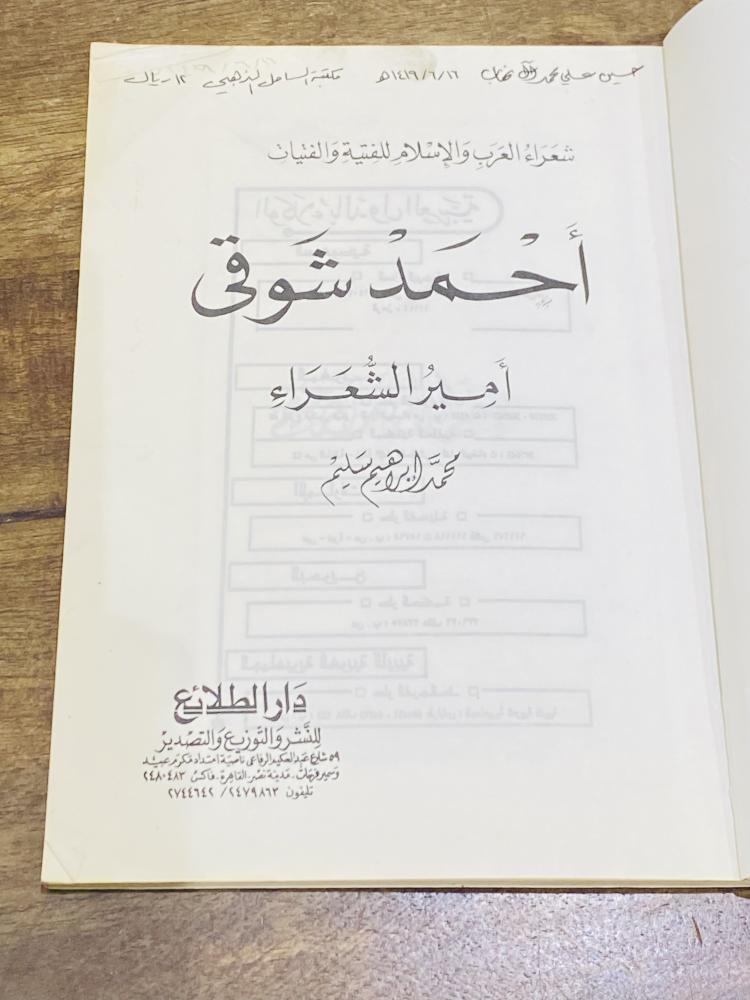 حسين علي محمد ١٤١٩/٦/١٦هـ مكتبة الساحل الذهبي ١٢ ريال
شعراء العرب والإسلام للفتية والفتيات
أحمد شوقى
أمير الشعراء
محمد إبراهيم سليم
دار الطلائع
للنشر والتوزيع والتصدير
٥٩ شارع عبد الحكيم الرفاعى ناصية امتداد مكرم عبيد
وسمير فرحات - مدينة نصر - القاهرة. فاكس ٢٤٨٠٤٨٣
تليفون ٢٧٤٤٦٤٢/٢٤٧٩٨٦٣